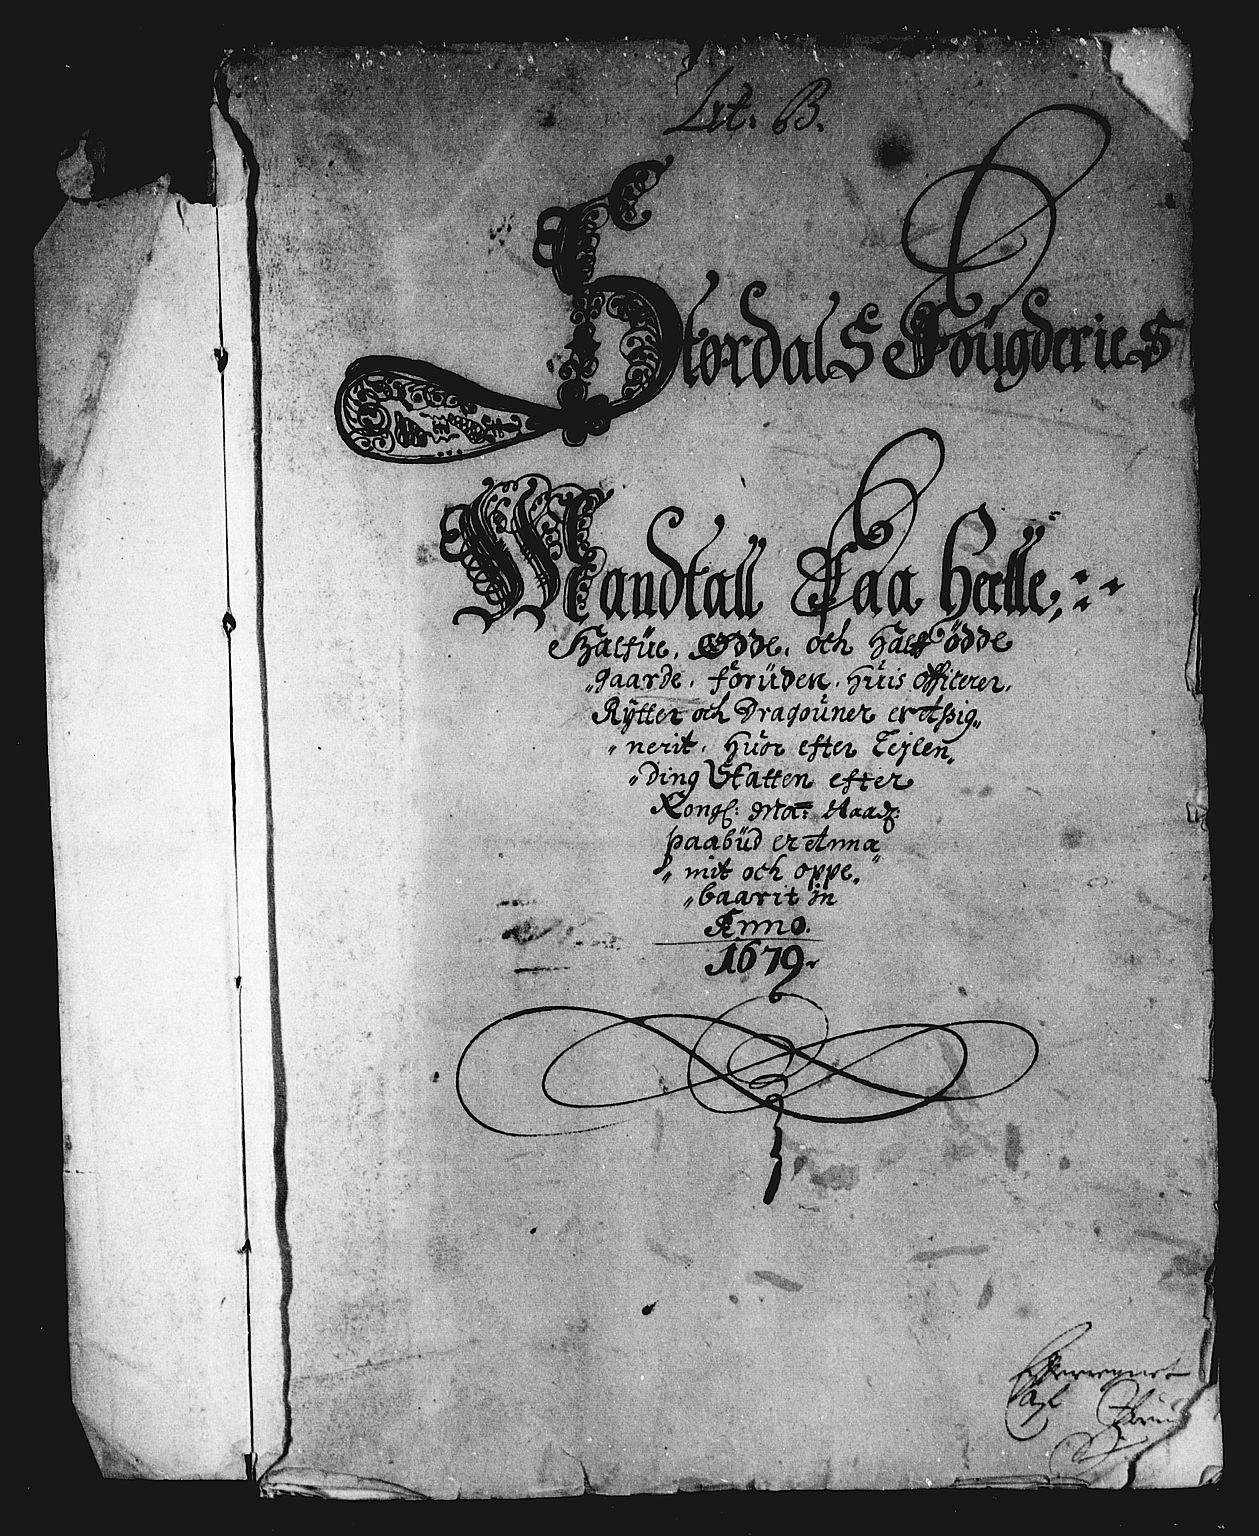 Lit. B.
Stordals Fougderies
Mandtall Paa Heelle,
Halfue, Ødde, och Half ödde
gaarde, forüden, Hüis officerer,
Rÿtter och Dragoüner er Aßig„
„nerit, hüor efter Lejlen„
„ding Skatten efter
Kongl: Ma: Naadg:
paabüd er Anna„
„mit och oppe„
„baarit in
Anno.
1679.